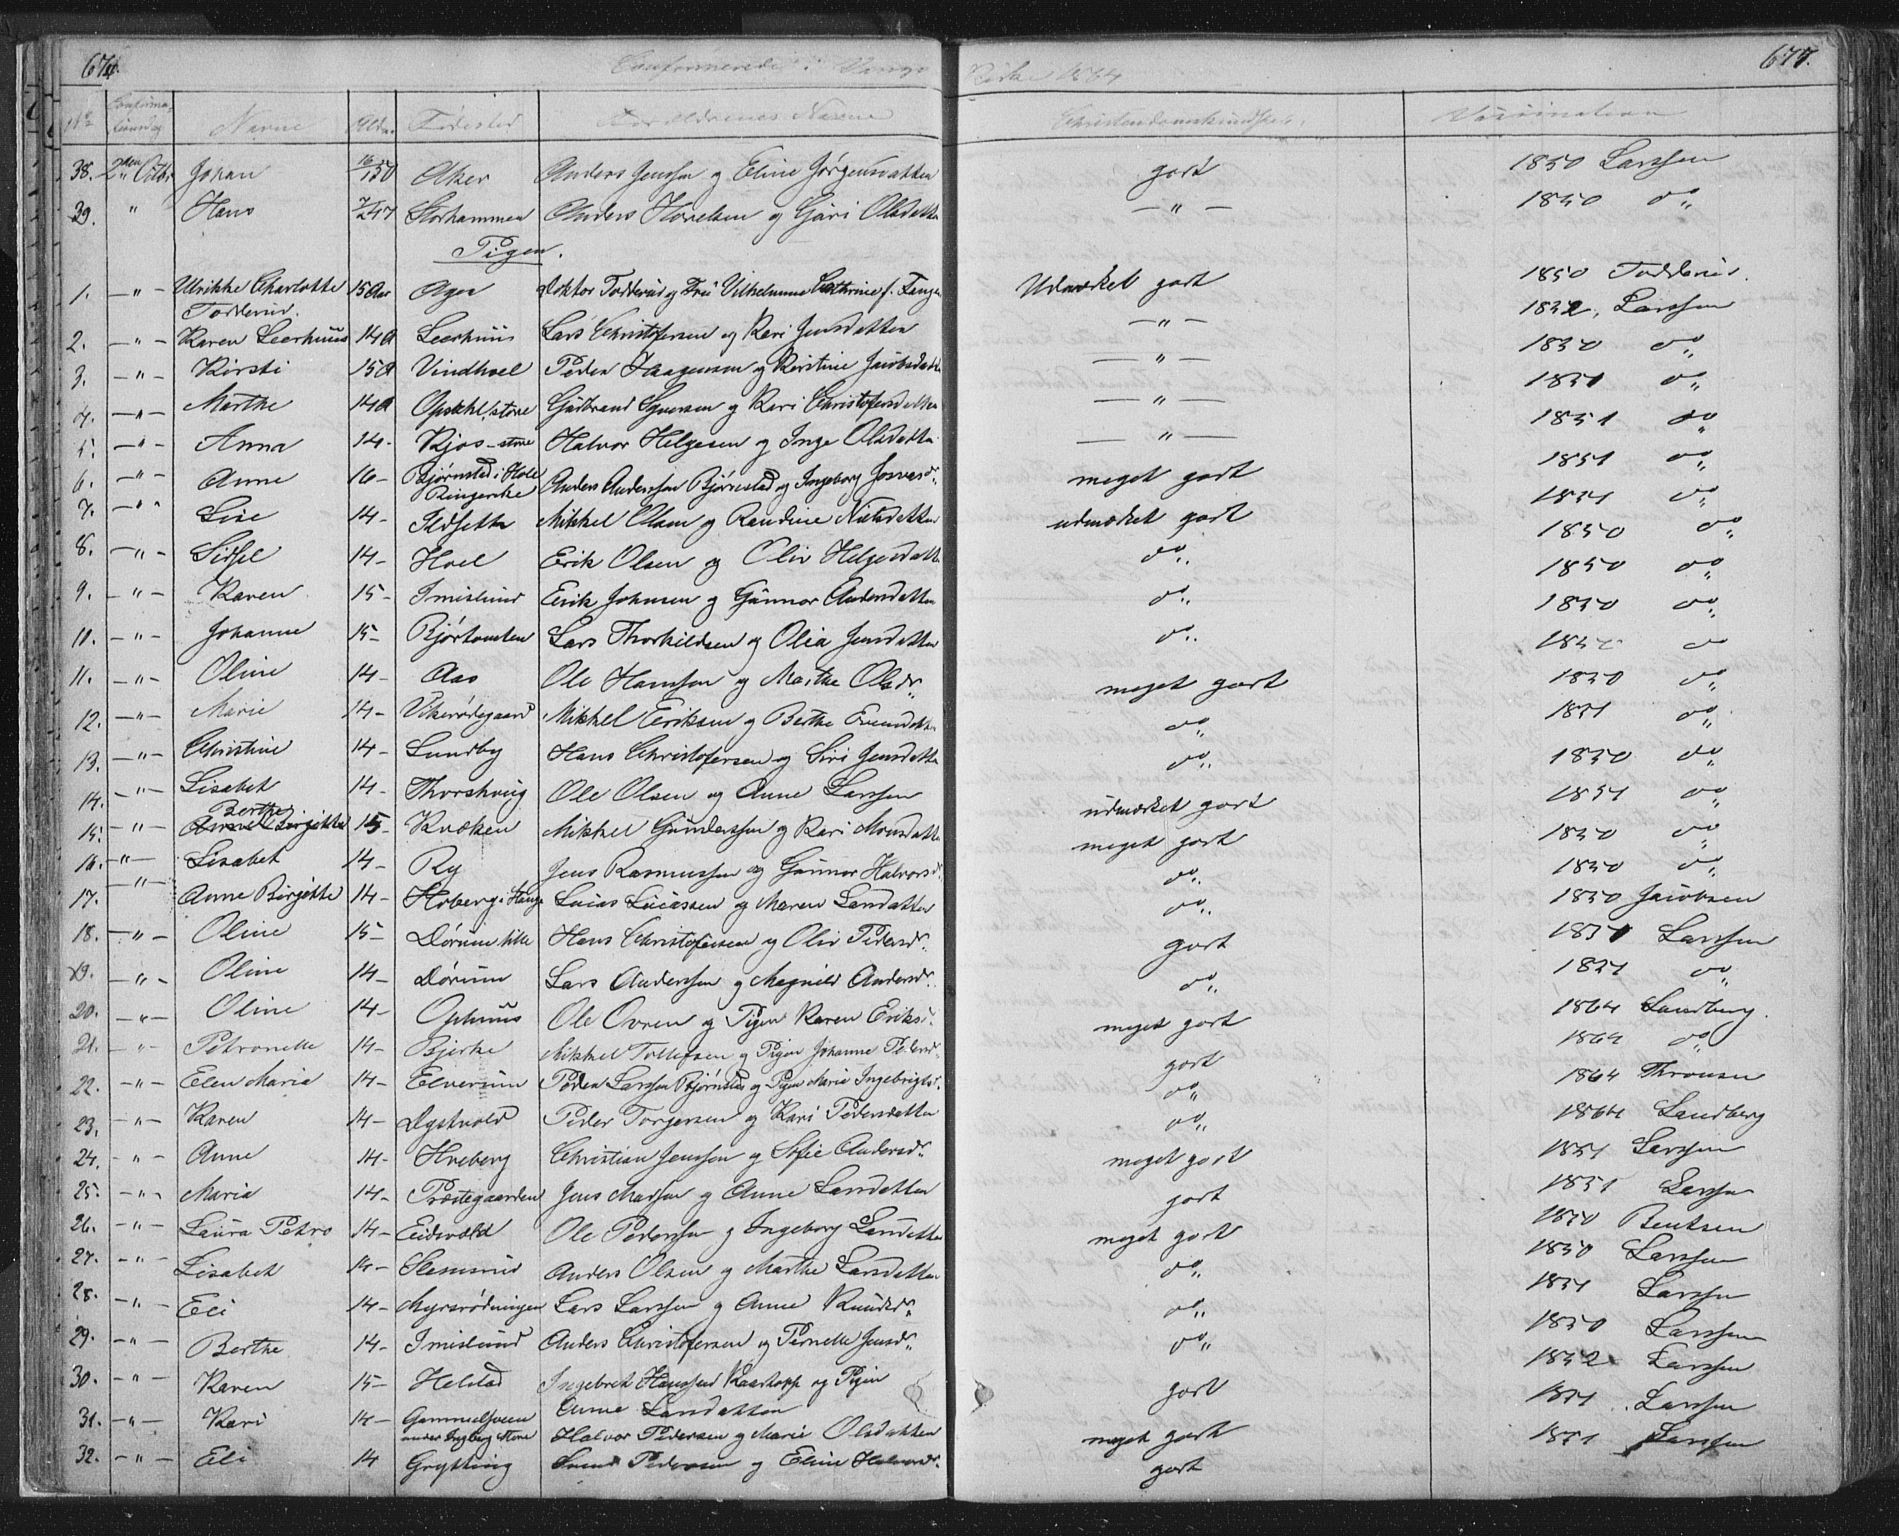 676. Confirmerede i Vangs Kirke 1864 677.
No Confirma-tionsdag Navne Alder Fødested Forældrenes Navne Christendomskundskab Vaccination
38. 2den Octbr Johan 16/1 50 Aker Anders Jensen og Eline Jørgensdatter godt 1850 Larssen
39. " Hans Storhammer Anders Hovelsen og Gúri Olsdatter — " — 1850 do
Piger.
1. — " — Ulrikke Charlotte 15 Aar Ager Doktor Todderud og Frú Vilhelmine Cathrine f. Udmærket godt 1850 Todderud.
Todderud.
2. — " — Karen Leerhuus 14 A Leerhuus Lars Christofersen og Kari Jensdatter — " — 1852. Larssen
3. — " — Kirsti 15 A Vindhoel Peder Haagensen og Kerstine Jacobsdatter — " — 1850 do
4. — " — Marthe 14 A Opsahl, store Gúdbrand Syversen og Kari Christofersdatter — " — 1851 do
5. — " — Anna 14 - Kjos - store Halvor Helgesen og Inge Olsdatter — " — 1851 do
6. — " — Anne 16 - Bjørnstad i Hole Ringerike Anders Anderssen Bjørnstad og Ingeborg meget godt 1851 do
7. — " — Lise 14 - Ildsetta Mikkel Olsen og Randine Nilsdatter udmærket godt 1851 do
8. — " — Sissel 14 - Hoel Erik Olsen og Oliv Helgesdatter do 1850 do
9. — " — Karen 15 - Imislund Erik Johnsen og Gúnnor Andersdatter do 1850 do
10. — " — Johanne 15 - Bjørtomten Lars Thorkildsen og Olia Jensdatter do 1850 do
11. — " — Oline 14 - Aas Ole Hanssen og Marthe Olsdr meget godt 1852 do
12. — " — Marie 14 - Vikerødegaard Mikkel Eriksen og Berthe Evensdatter do 1850 do
13. — " — Christine 14 - Lundby Hans Christofersen og Siri Jensdatter do 1851 do
14. — " — Lisabet 14 - Thorshoug Ole Olsen og Anne Larssen udmærket godt 1850 do
15. — " — Berthe Birgitte 15 - Knæken Mikkel Gúnderssen og Kari Monsdatter meget godt 1851 do
16. — " — Lisabet 14 - Ry Jens Rasmussen og Gúnnor Halvorsdr. do 1850 do
17. — " — Anne Birgitte 14 - Hoberg i Stange Lúcas Lúcassen og Maren Larsdatter do 1850 do
18. — " — Oline 15 - Dørum lille Hans Christofersen og Oliv Pedersdr. godt 1850 Jacobsen
19. — " — Oline 14 - Dørum Lars Anderssen og Magnild Andersdr. do 1851 Larssen
20. — " — Oline 14 - Ophuus Ole Ovren og Pigen Karen Eriksdr. meget godt 1851 do
21. — " — Petronelle 14 - Bjerke Mikkel Tollefsen og Pigen Johanne Pedersdr. godt 1864 Sandberg.
22. — " — Elen Maria 14 - Elverum Peder Larssen Bjørnstad og Pigen Marie Ingebrigtsdr. do 1864 do
23. — " — Karen 14 - Dystvold Peder Torgersen og Kari Pedersdatter do 1864 Thronsen
24. — " — Anne 14 - Hveberg Christian Jenssen og Sofie Andersdr. meget godt 1864 Sandberg
25. — " — Maria 14 - Præstegaarden Jens Madsen og Anne Larsdatter godt 1851 Larssen
26. — " — Laúra Petro 14 - Eidsvold Ole Pederssen og Ingeborg Larsdatter meget godt 1851 Larssen
27. — " — Lisabet 14 - Slemsrud Anders Olsen og Marthe Larsdatter do 1850 Bentsen
28. — " — Eli 14 - Myrsrødningen Lars Larssen og Anne Knúdsdr. do 1850 Larssen
29. — " — Berthe 14 - Imislund Anders Christofersen og Pernelle Jensdr. do 1851 Larssen
30. — " — Karen 15 - Helstad Ingebret Hanssen Kaartorp og Pigen godt 1850 Larssen
Anne Larsdatter 1852 Larssen
31. — " — Kari 14 - Gammelsveen under Dyberg store Halvor Pedersen og Marie Olsdatter meget godt 1851 Larssen
32. — " — Eli 14 Grytting Svend Pederssen og Eline Halvorsdr. godt 1851 Larssen